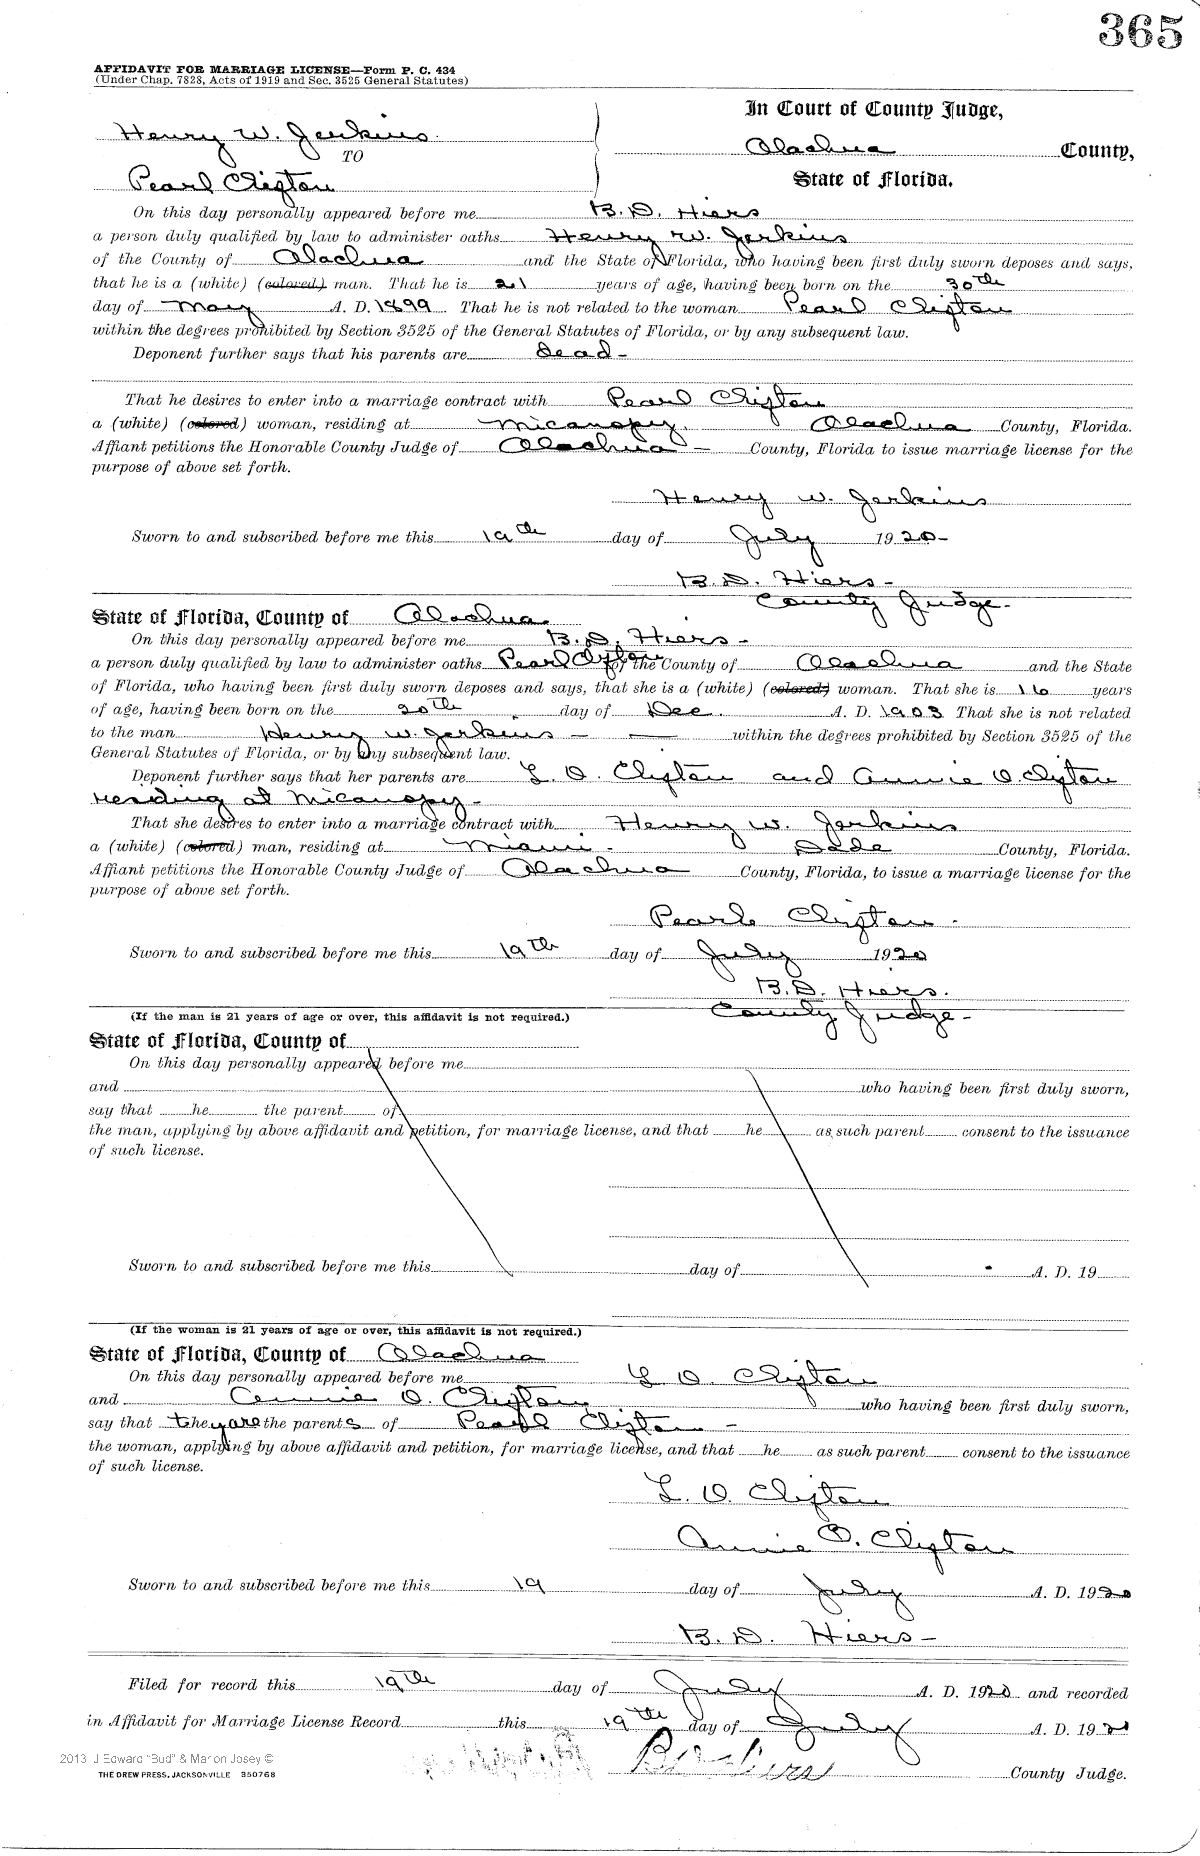 365
AFFIDAVIT FOR MARRIAGE LICENSE—Form P. C. 434
(Under Chap. 7828, Acts of 1919 and Sec. 3525 General Statutes)
In Court of County Judge,
Henry W. Jerkins
TO
Alachua County,
Pearl Clifton
State of Florida.
On this day personally appeared before me B. D. Hiers
a person duly qualified by law to administer oaths Henry W. Jerkins
of the County of Alachua and the State of Florida, who having been first duly sworn deposes and says,
that he is a (white) (colored) man. That he is 21 years of age, having been born on the 30th
day of May A. D. 1899 That he is not related to the woman Pearl Clifton
within the degrees prohibited by Section 3525 of the General Statutes of Florida, or by any subsequent law.
Deponent further says that his parents are dead-
That he desires to enter into a marriage contract with Pearl Clifton
a (white) (colored) woman, residing at Micanopy. Alachua County, Florida.
Affiant petitions the Honorable County Judge of Alachua - County, Florida to issue marriage license for the
purpose of above set forth.
Henry W. Jerkins
Sworn to and subscribed before me this 19th day of July 1920-
B. D. Hiers-
County Judge-
State of Florida, County of Alachua
On this day personally appeared before me B. D. Hiers-
a person duly qualified by law to administer oaths Pearl Clifton of the County of Alachua and the State
of Florida, who having been first duly sworn deposes and says, that she is a (white) (colored) woman. That she is 16 years
of age, having been born on the 20th day of Dec. A. D. 1903 That she is not related
to the man Henry W. Jerkins - — within the degrees prohibited by Section 3525 of the
General Statutes of Florida, or by any subsequent law.
Deponent further says that her parents are L. O. Clifton and Annie O. Clifton
residing at Micanopy-
That she desires to enter into a marriage contract with Henry W. Jerkins
a (white) (colored) man, residing at Miami- Dade County, Florida.
Affiant petitions the Honorable County Judge of Alachua County, Florida, to issue a marriage license for the
purpose of above set forth.
Pearle Clifton-
Sworn to and subscribed before me this 19th day of July 1920
B. D. Hiers.
County Judge-
(If the man is 21 years of age or over, this affidavit is not required.)
State of Florida, County of
On this day personally appeared before me
and who having been first duly sworn,
say that he the parent of
the man, applying by above affidavit and petition, for marriage license, and that he as such parent consent to the issuance
of such license.
Sworn to and subscribed before me this day of A. D. 19
(If the woman is 21 years of age or over, this affidavit is not required.)
State of Florida, County of Alachua
On this day personally appeared before me L O. Clifton
and Annie O. Clifton who having been first duly sworn,
say that they are the parents of Pearl Clifton -
the woman, applying by above affidavit and petition, for marriage license, and that he as such parent consent to the issuance
of such license.
L. O. Clifton
Annie O. Clifton
Sworn to and subscribed before me this 19 day of July A. D. 1920
B. D. Hiers-
Filed for record this 19th day of July A. D. 1920 and recorded
in Affidavit for Marriage License Record this 19th day of July A. D. 192
2013 J Edward "Bud" & Marion Josey ©
THE DREW PRESS, JACKSONVILLE 350768
County Judge.